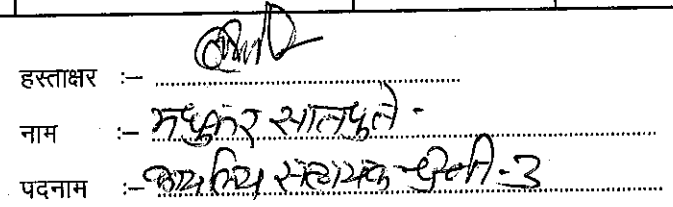 हस्ताक्षर :–
नाम :– मधुकर सातपुते -
पदनाम :– कार्यालय सहायक श्रेणी-3